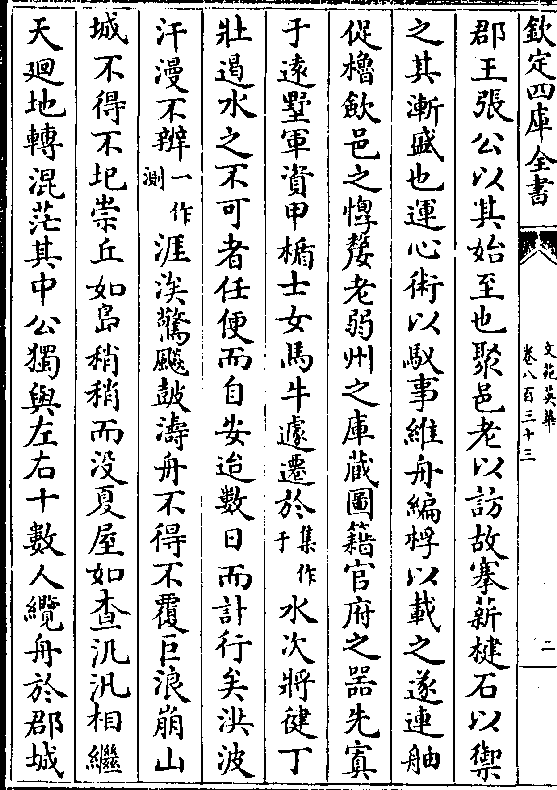 欽定四庫全書
文苑英華
卷八百三十三
二
郡王張公以其始至也聚邑老以訪故塞薪楗石以禦
之其漸盛也運心術以馭事維舟編桴以載之遂連舳
促櫓歛邑之惸嫠老弱州之庫藏圖籍官府之器先寘
于逺墅軍資甲楯士女馬牛遽遷於集作于水次將健丁
壯遏水之不可者任便而自安迨數日而計行矣洪波
汗漫不辨一作測涯涘驚飈鼓濤舟不得不覆巨浪崩山
城不得不圯崇丘如島稍稍而没夏屋如查汎汎相繼
天廻地轉混茫其中公獨與左右十數人纜舟於郡城